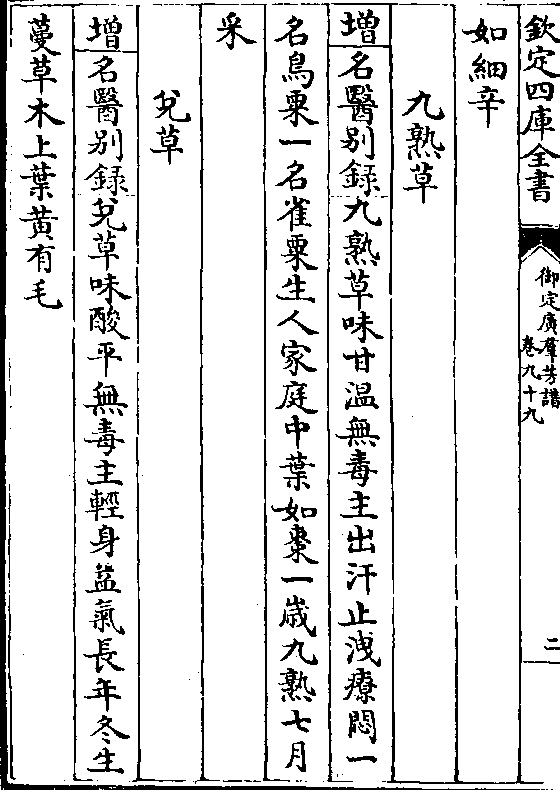 欽定四庫全書
御定廣羣芳譜
卷九十九
二
如細辛
九熟草
增名醫别錄九熟草味甘温無毒主出汗止洩療悶一
名烏粟一名雀粟生人家庭中葉如棗一歲九熟七月
采
兌草
增名醫别錄兌草味酸平無毒主輕身益氣長年冬生
蔓草木上葉黃有毛